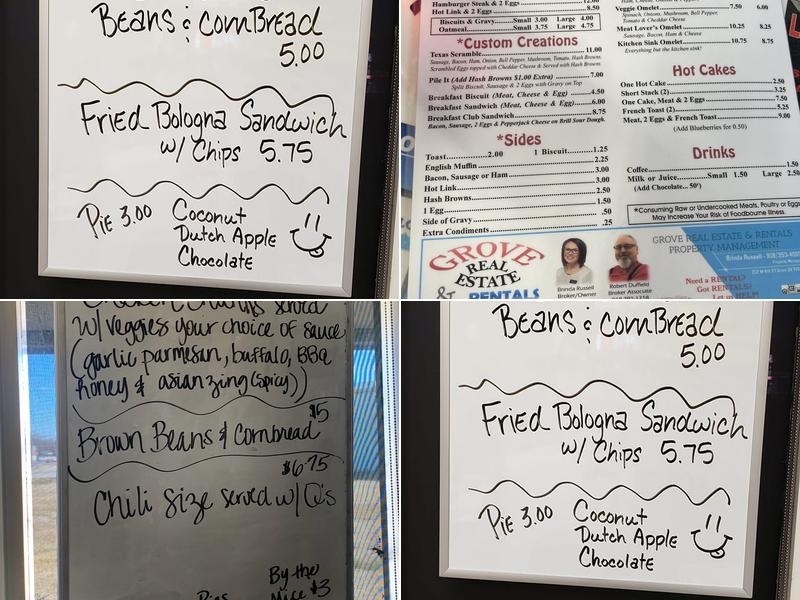 Beans & cornBread
5.00
Fried Bologna Sandwich
w/ Chips 5.75
Pie 3.00
Coconut
Dutch Apple
Chocolate
Hamburger Steak & 2 Eggs
Hot Link & 2 Eggs 8.50
Biscuits & Gravy Small 3.00 Large 4.00
Oatmeal Small 3.75 Large 4.75
*Custom Creations
Texas Scramble 11.00
Sausage, Bacon, Ham, Onion, Bell Pepper, Mushroom, Tomato, Hash Browns,
Scrambled Eggs topped with Cheddar Cheese & Served with Hash Browns.
Pile It (Add Hash Browns $1.00 Extra) 7.00
Split Biscuit, Sausage & 2 Eggs with Gravy on Top
Breakfast Biscuit (Meat, Cheese & Egg) 4.50
Breakfast Sandwich (Meat, Cheese & Egg) 6.00
Breakfast Club Sandwich 8.75
Bacon, Sausage, 2 Eggs & Pepperjack Cheese on Brill Sour Dough.
*Sides
Toast 2.00 1 Biscuit 1.25
English Muffin 2.25
Bacon, Sausage or Ham 3.00
Hot Link 3.00
Hash Browns 2.50
1 Egg 1.50
Side of Gravy .50
Extra Condiments .25
Veggie Omelet 7.50 6.00
Spinach, Onions, Mushroom, Bell Pepper,
Tomato & Cheddar Cheese
Meat Lover's Omelet 10.25 8.25
Sausage, Bacon, Ham & Cheese
Kitchen Sink Omelet 10.75 8.75
Everything but the kitchen sink!
Hot Cakes
One Hot Cake 2.50
Short Stack (2) 3.25
One Cake, Meat & 2 Eggs 7.50
French Toast (2) 5.25
Meat, 2 Eggs & French Toast 9.00
(Add Blueberries for 0.50)
Drinks
Coffee 1.50
Milk or Juice Small 1.50 Large 2.50
(Add Chocolate... 50¢)
*Consuming Raw or Undercooked Meats, Poultry or Eggs
May Increase Your Risk of Foodbourne Illness.
GROVE
REAL
ESTATE
& RENTALS
Brinda Russell
Broker/Owner
Robert Duffield
Broker Associate
GROVE REAL ESTATE & RENTALS
PROPERTY MANAGEMENT
Brinda Russell
Need a RENTAL?
Got RENTALS?
w/ veggies your choice of sauce
(garlic parmesan, buffalo, BBQ
honey & asian zing (spicy))
$5
Brown Beans & Cornbread
$6.75
Chili Size served w/ Q's
By the
Pies
Slice $3
Beans & cornBread
5.00
Fried Bologna Sandwich
w/ Chips 5.75
Pie 3.00
Coconut
Dutch Apple
Chocolate